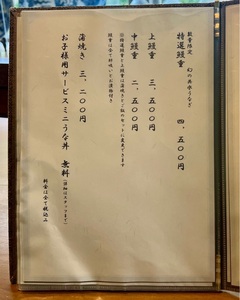 数量限定 幻の共水うなぎ
特選鰻重 四、五〇〇円
上鰻重 三、五〇〇円
中鰻重 二、五〇〇円
蒲焼き 三、二〇〇円
お子様用サービスミニうな丼 無料
料金は全て税込み